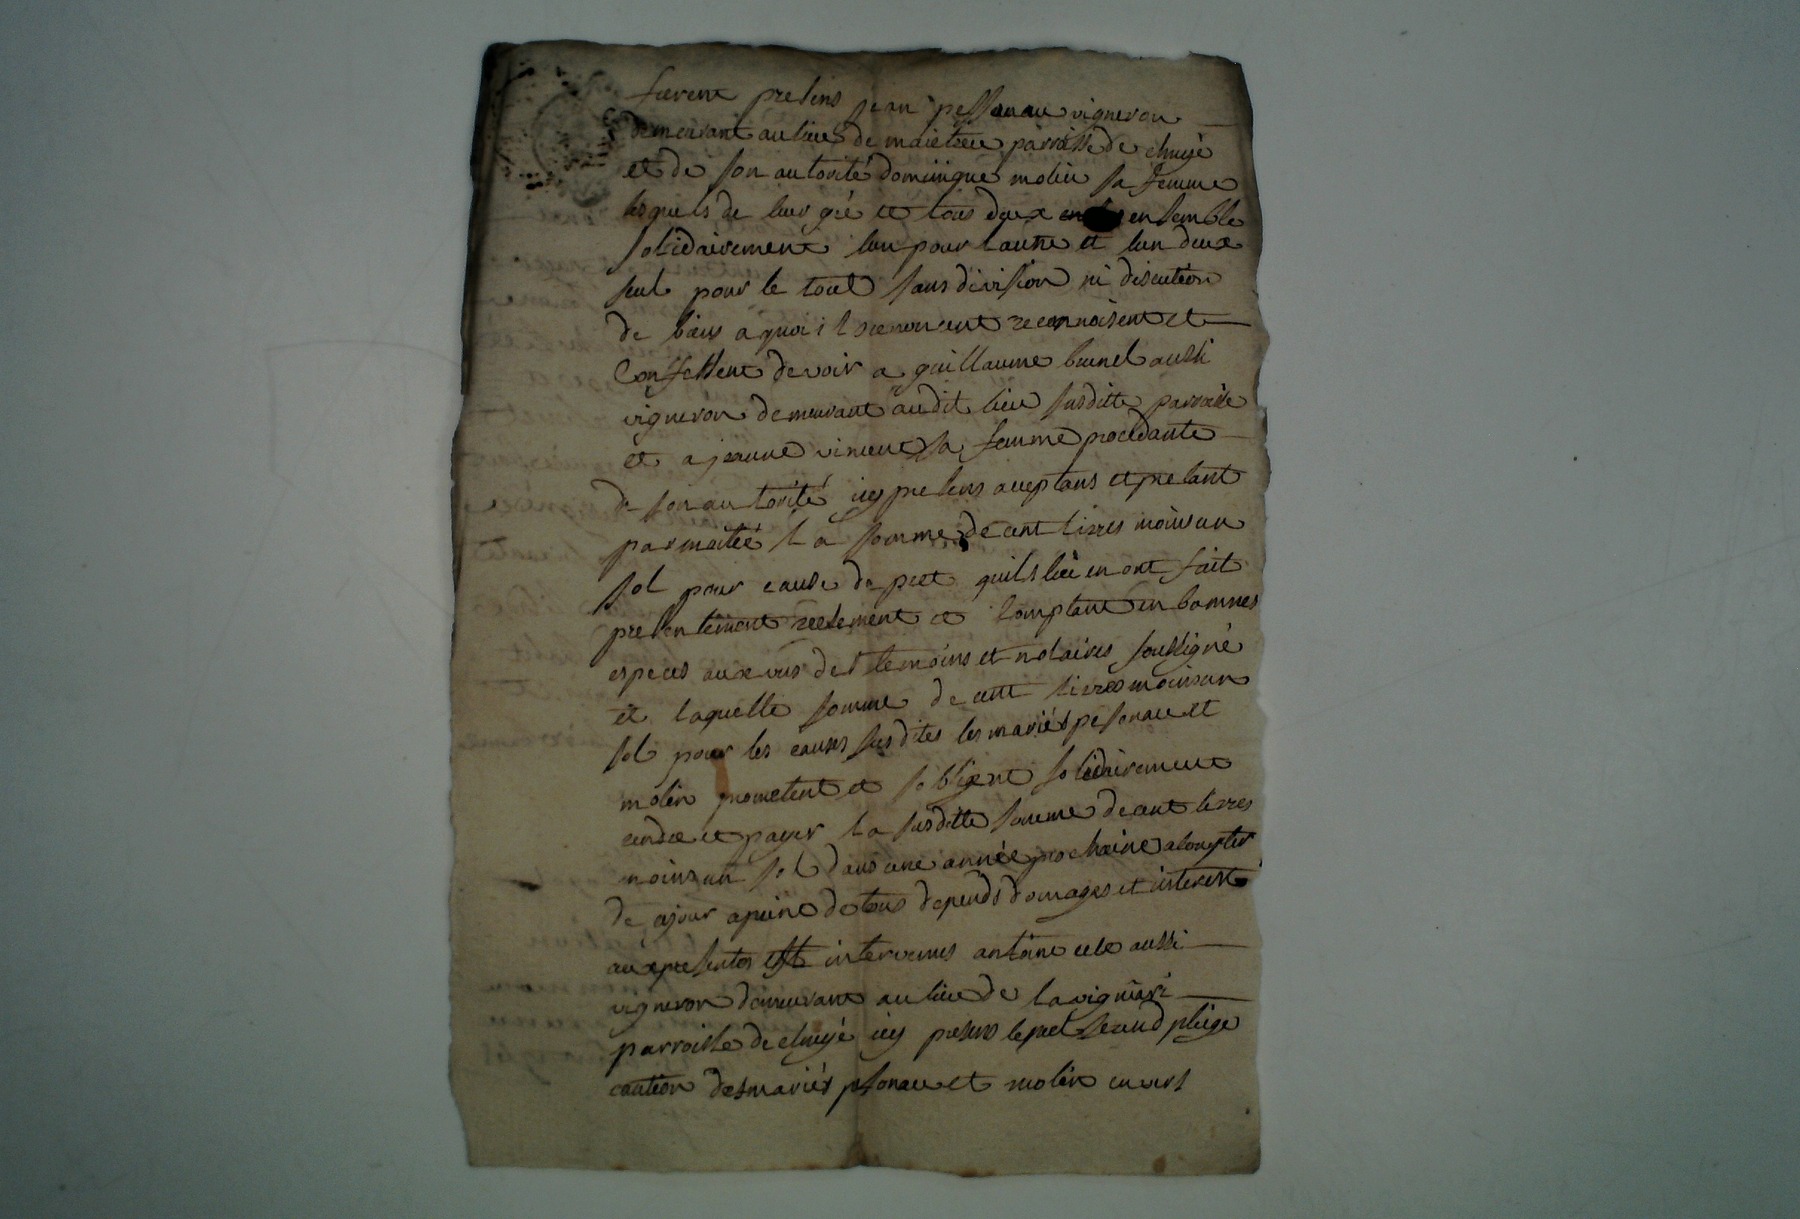 furent presens jean pessonau vigneron
demeurant au lieu de parroisse de
et de son autorité dominique molin sa femme
lesquels de leur gré et tous deux ensemble
solidairement lun pour lautre et lun deux
seul pour le tout sans division ni discution
de biens a quoi il renoncent reconnoisent et
confessent devoir a guillaume brunel aussi
vigneron demeurant audit lieu susditte parroisse
et a jeanne vincent sa femme procedante
de son autorité icy presens acceptans et pretant
par moitié la somme de cent livres moins un
sol pour cause de pret quils lieu en ont fait
presentement reelement et comptant en bonnes
especes aux vus des temoins et notaires soussigné
et laquelle somme de cent livres moins un
sol pour les causes susdites les mariés pesonau et
molin prometent et sobligent solidairement
rendre et payer la susditte somme de cent livres
moins un sol dans une année prochaine a compter
de ce jour a peine de tous depends domages et interest
aux presentes est intervenus antoine aussi
vigneron demeurant au lieu de
parroisse de icy presens lequel se rend pleige
caution des mariés pesonau et molin envers